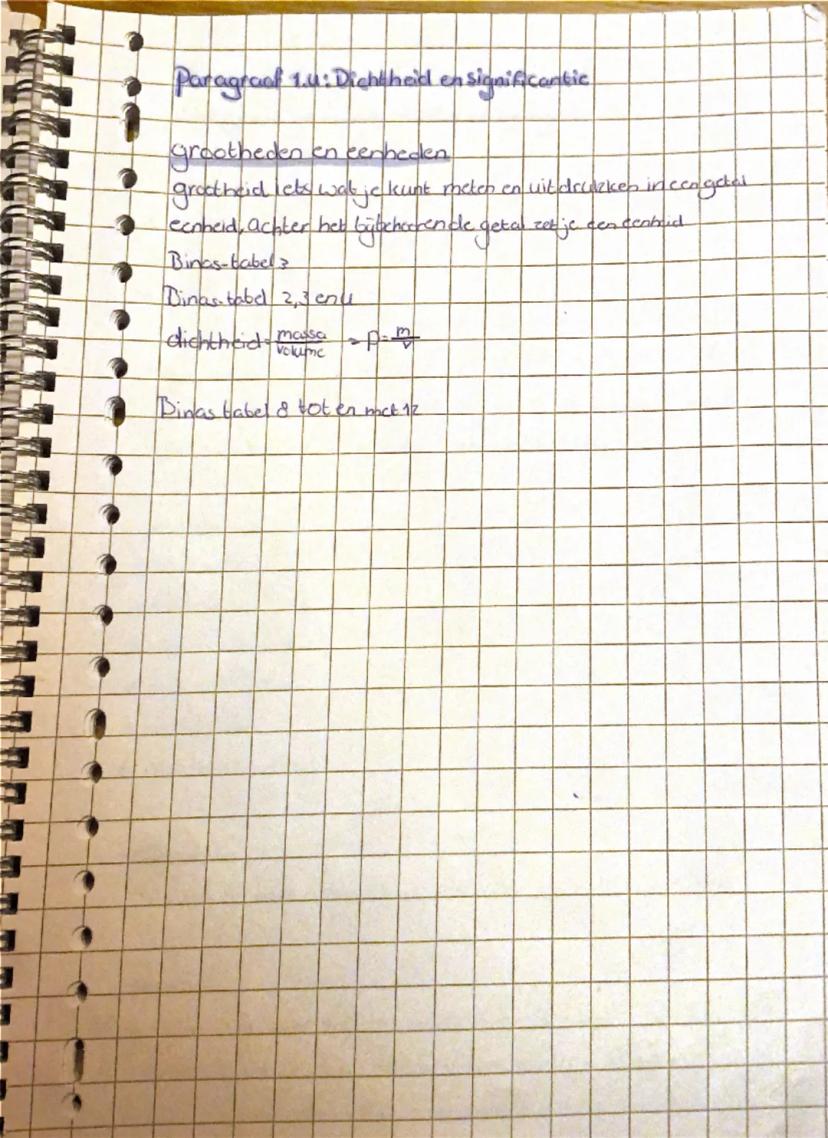 Paragraaf 1.4: Dichtheid en significantie
grootheden en eenheden
grootheid, iets wat je kunt meten en uitdrukken in een getal
eenheid, achter het bijbehorende getal zet je een eenheid
Binas-tabel 3
Binas-tabel 2,3 en 4
dichtheid = massa/volume → ρ = m/V
Binas tabel 8 tot en met 12